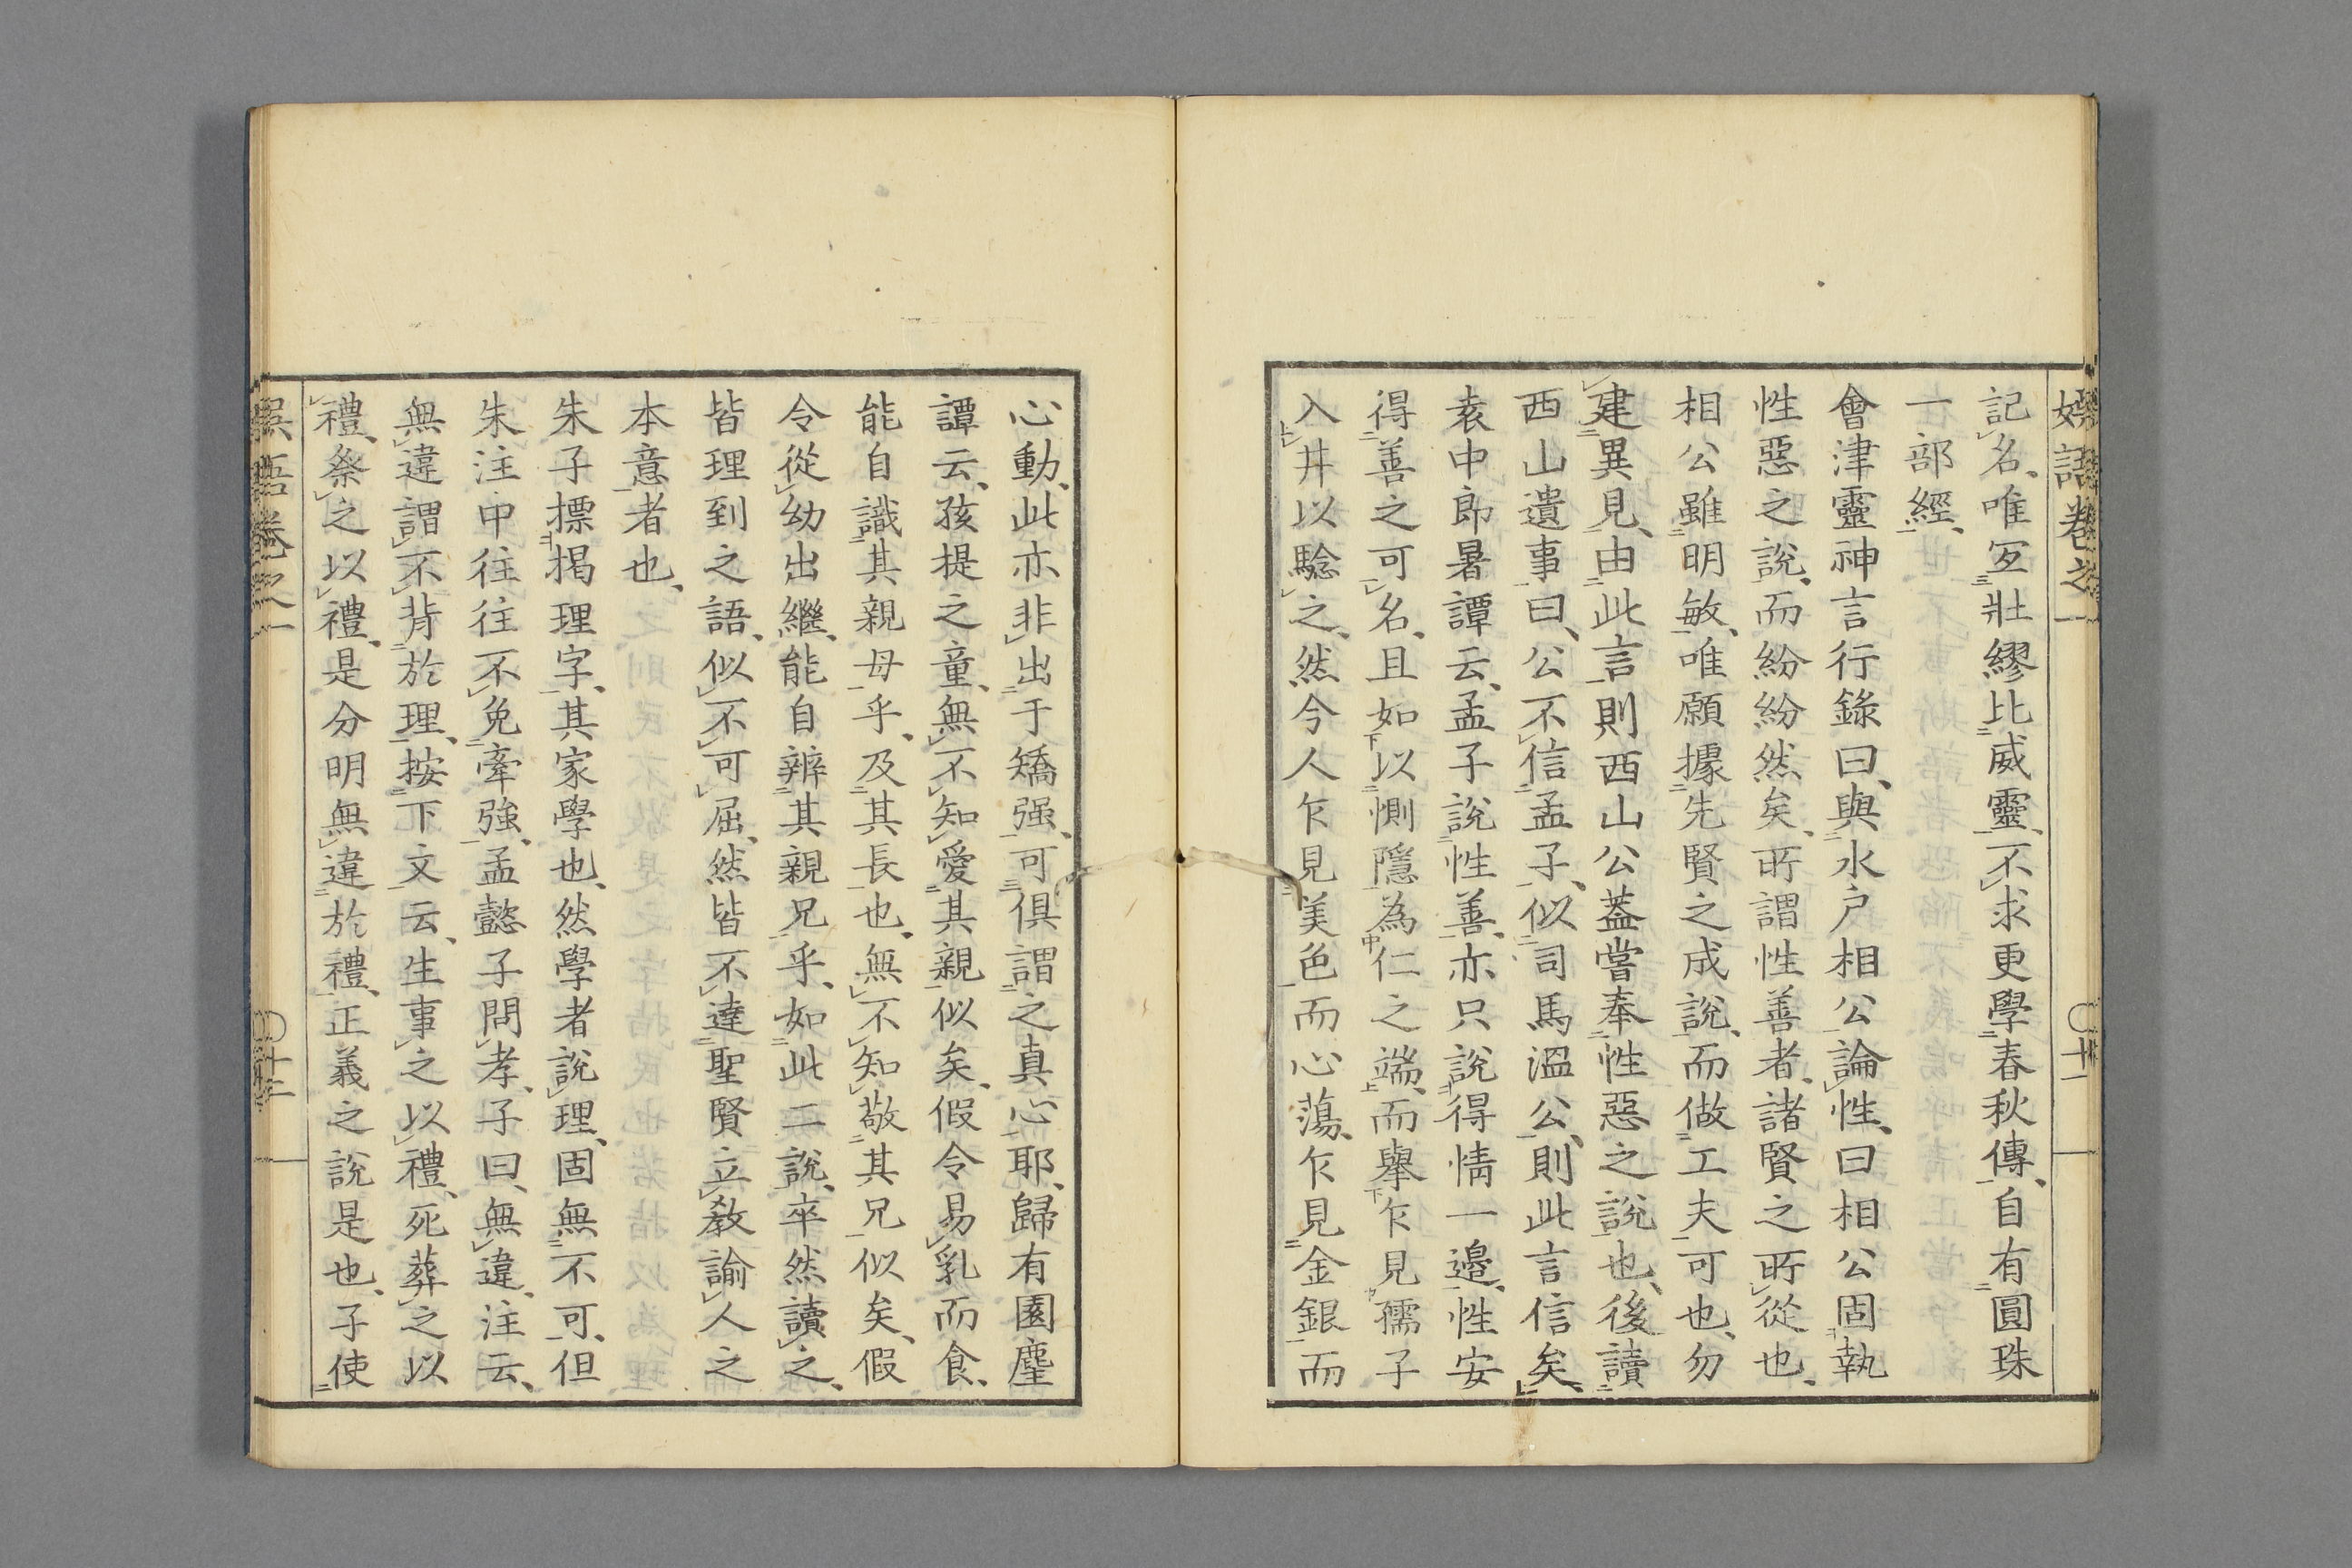 記名、唯冝壯繆比威靈、不求更學春秋傳、自有圓珠
一部經、
會津靈神言行錄曰、與水戶相公論性、曰相公固執
性惡之說、而紛紛然矣、所謂性善者、諸賢之所從也、
相公雖明敏、唯願據先賢之成說、而做工夫可也、勿
建異見、由此言則西山公蓋嘗奉性惡之說也、後讀
西山遺事曰、公不信孟子、似司馬溫公、則此言信矣、
袁中郎暑譚云、孟子說性善、亦只說得情一邊、性安
得善之可名、且如以惻隱為仁之端、而舉乍見孺子
入井以驗之、然今人乍見美色而心蕩、乍見金銀而
心動、此亦非出于矯强、可俱謂之真心耶、歸有園麈
譚云、孩提之童、無不知愛其親似矣、假令易乳而食、
能自識其親母乎、及其長也、無不知敬其兄似矣、假
令從幼出繼、能自辨其親兄乎、如此二說、卒然讀之、
皆理到之語、似不可屈、然皆不達聖賢立教諭人之
本意者也、
朱子標揭理字、其家學也、然學者說理、固無不可、但
朱注中往往不免牽強、孟懿子問孝、子曰、無違、注云、
無違謂不背於理、按下文云、生事之以禮、死葬之以
禮、祭之以禮、是分明無違於禮、正義之說是也、子使